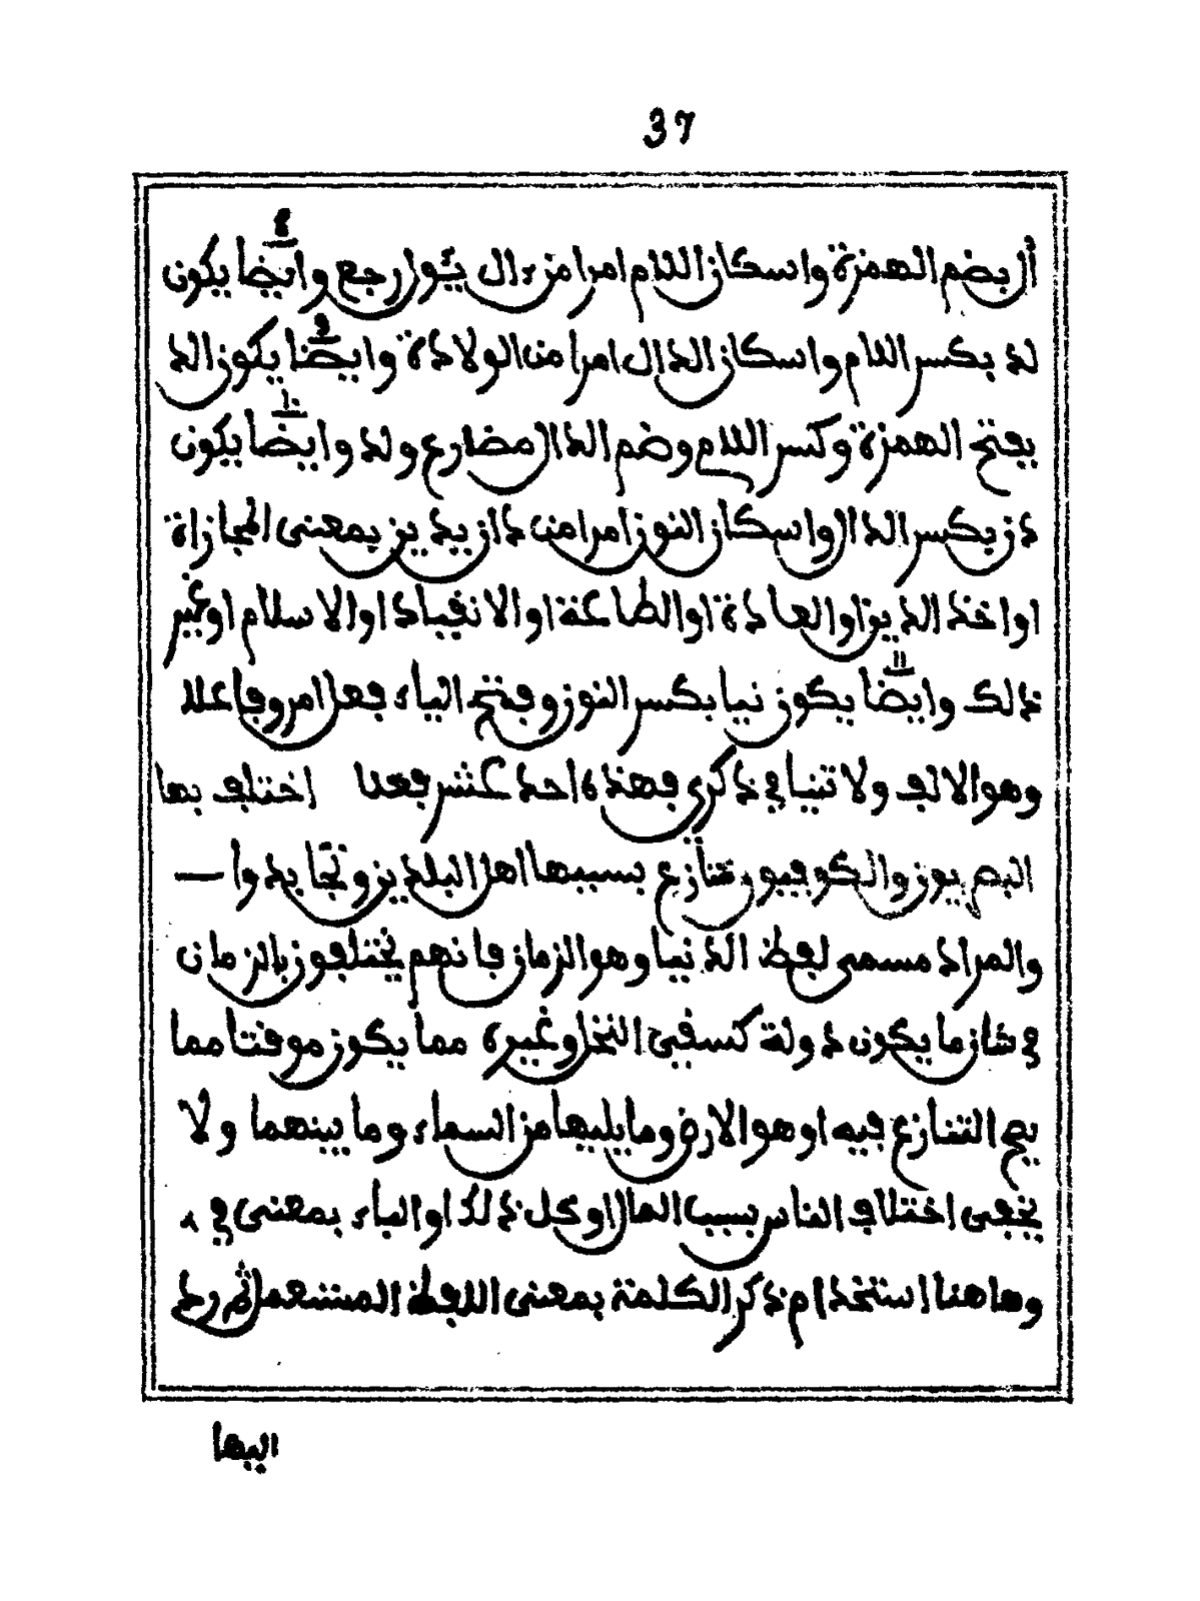 37
أل بضم الهمزة واسكان اللام امرا من ءال يئول رجع وايضا ٨ يكون
لد بكسر اللام واسكان الدال امرا من الولادة وايضا ٩ يكون الد
بفتح الهمزة وكسر اللام وضم الدال مضارع ولد وايضا ١٠ يكون
دن بكسر الدال واسكان النون امرا من دان يدين بمعنى المجازاة
او اخذ الدين او العادة او الطاعة او الانقياد او الاسلام او غير
ذلك وايضا ١١ يكون نيا بكسر النون وفتح الياء فعل امر وفاعلا
وهو الالف ولا تنيا في ذكرى فهذه احد عشر فعلا اختلف بها
البصريون والكوفيون تنازع بسببها اهل البلدين وتجابدوا —
والمراد مسمى لفظ الدنيا وهو الزمان فانهم يختلفون بالزمان
في شان ما يكون دولة كسقي النخل وغيره مما يكون موقتا مما
يصح التنازع فيه او هو الارض وما يليها من السماء وما بينهما ولا
يخفى اختلاف الناس بسبب المال او كل ذلك او الباء بمعنى في
وهاهنا استخدام ذكر الكلمة بمعنى اللفظ المستعمل ثم رد
اليها